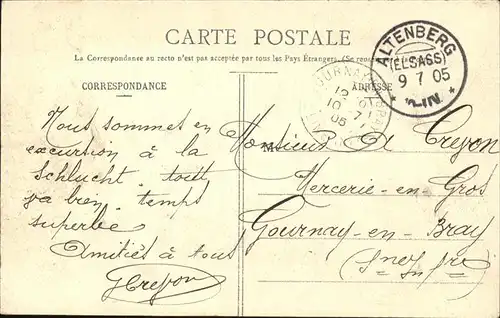 CARTE POSTALE
La Correspondance au recto n'est pas acceptée par tous les Pays Étrangers. (Se
CORRESPONDANCE
ADRESSE
ALTENBERG
(ELSASS)
9 7 05
GOURNAY
10 7
05
Nous sommes en
excursion à la
Schlucht tout
va bien temps
superbe
Amitiés à tous
GCrepon
Monsieur A Crepon
Mercerie-en-Gros
Gournay-en-Bray